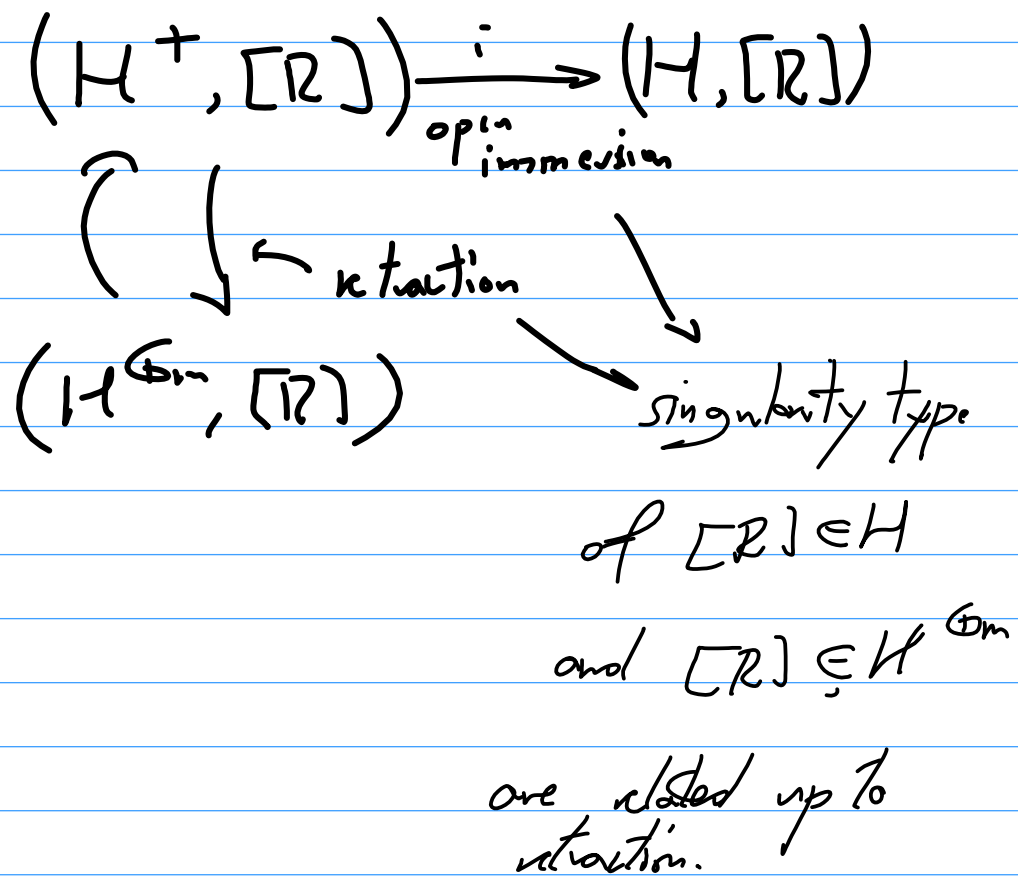 (H⁺, [R]) i (H, [R])
open
immersion
retraction
(H^{𝔾m}, [R])
singularity type
of [R] ∈ H
and [R] ∈ H^{𝔾m}
are related up to
retraction.